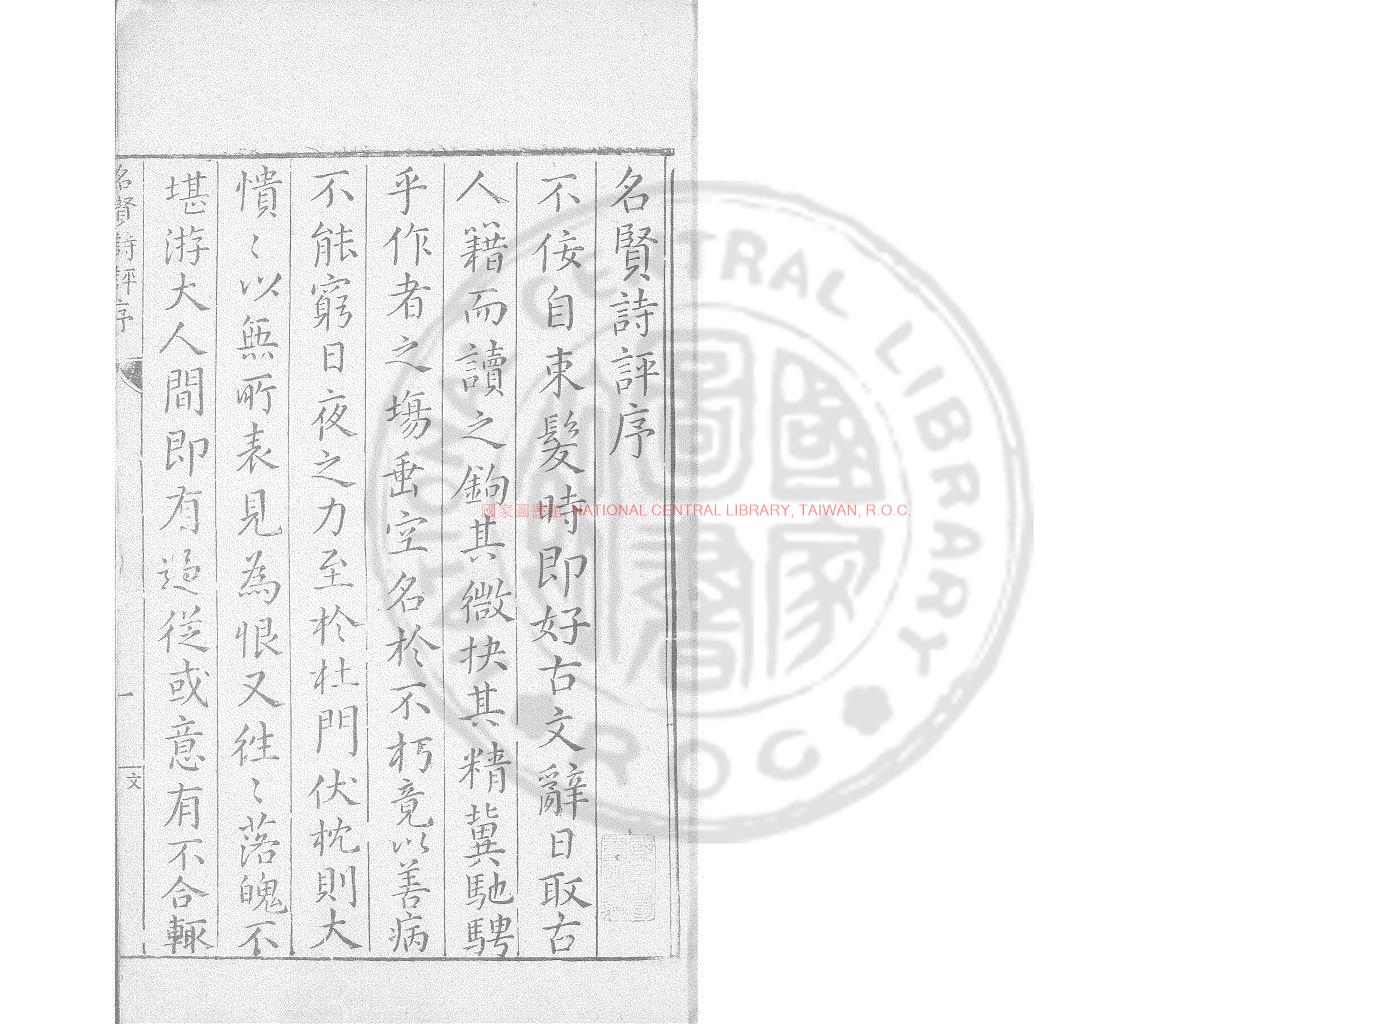 名賢詩評序
不佞自束髮時即好古文辭日取古
人籍而讀之鉤其微抉其精冀馳騁
乎作者之塲垂空名於不朽竟以善病
不能窮日夜之力至於杜門伏枕則大
憒〻以無所表見為恨又徃〻落魄不
堪游大人間即有過從或意有不合輒
名賢詩評序
一
文
國家圖書館 NATIONAL CENTRAL LIBRARY, TAIWAN, R.O.C.
NATIONAL CENTRAL LIBRARY
ROC
國家圖書